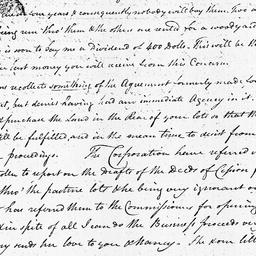 four years & consequently nobody will buy them.
run thro' them & the other are rented for a woodyard
is soon to pay me a Dividend of 400 Dolls. This will be the
first money you will receive from this Concern.
recollects something of the Agreement formerly made
but, but denies having had any immediate Agency in it.
repurchase the Land in the rear of your lots so that the
will be fulfilled, and in the mean time to desist from
proceedings. The Corporation have referred
to report on the drafts of the Deeds of Cession
thro' the pasture lots & he being very ignorant on
has referred them to the Commissioners for opening
in spite of all I can do the Business proceeds very
sends her love to you & Nancy. The corn